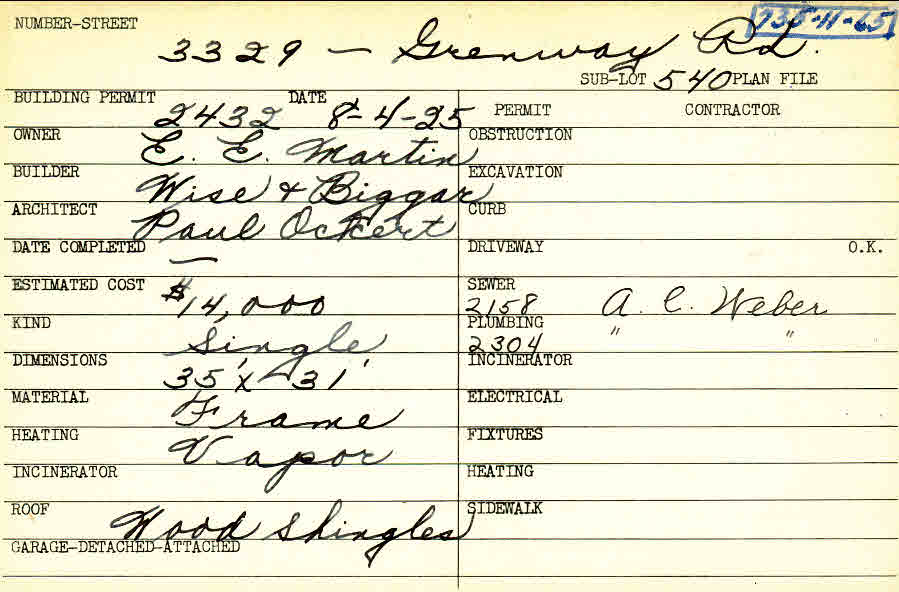 735-11-65
NUMBER-STREET 3329 — Grenway Rd.
SUB-LOT 540 PLAN FILE
BUILDING PERMIT 2432 DATE 8-4-25
OWNER E. E. Martin
BUILDER Wise + Biggar
ARCHITECT Paul Ockert
DATE COMPLETED —
ESTIMATED COST $14,000
KIND Single
DIMENSIONS 35' x 31'
MATERIAL Frame
HEATING Vapor
INCINERATOR
ROOF Wood Shingles
GARAGE-DETACHED-ATTACHED
PERMIT CONTRACTOR
OBSTRUCTION
EXCAVATION
CURB
DRIVEWAY O.K.
SEWER 2158 A. C. Weber
PLUMBING 2304 " "
INCINERATOR
ELECTRICAL
FIXTURES
HEATING
SIDEWALK